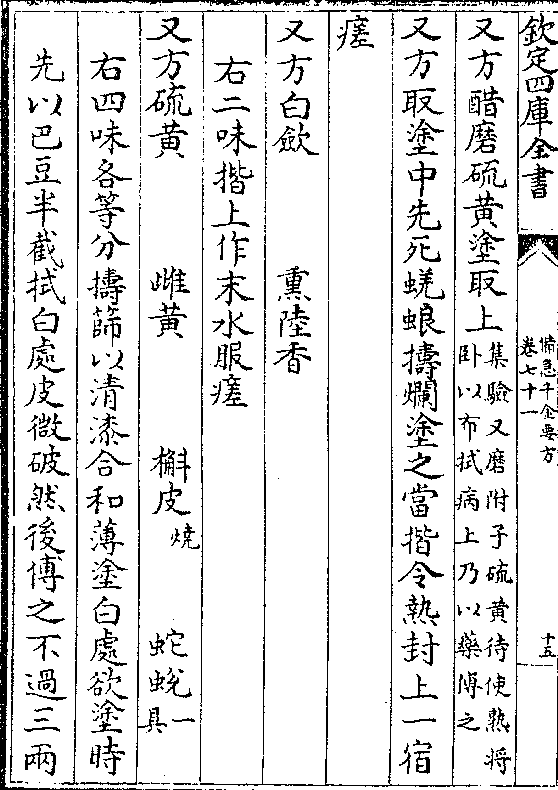 欽定四庫全書
備急千金要方
卷七十一
十五
又方醋磨硫黃塗取上集驗又磨附子硫黃待使熟將
卧以布拭病上乃以藥傅之
又方取塗中先死蜣蜋擣爛塗之當揩令熱封上一宿
瘥
又方白歛 熏陸香
右二味揩上作末水服瘥
又方硫黃 雌黃 槲皮燒 蛇蛻一具
右四味各等分擣篩以清漆合和薄塗白處欲塗時
先以巴豆半截拭白處皮微破然後傅之不過三兩